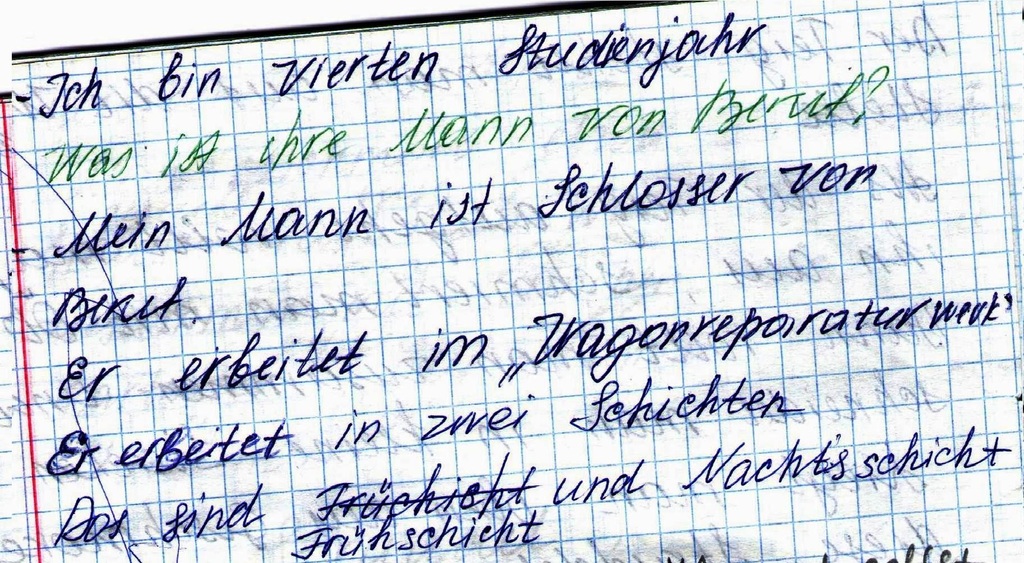 - Ich bin vierten Studienjahr
Was ist ihre Mann von Beruf?
- Mein Mann ist Schlosser von
Beruf.
Er erbeitet im „Wagonreparaturwerk"
Er erbeitet in zwei Schichten
Das sind Früchicht und Nachtsschicht
Frühschicht